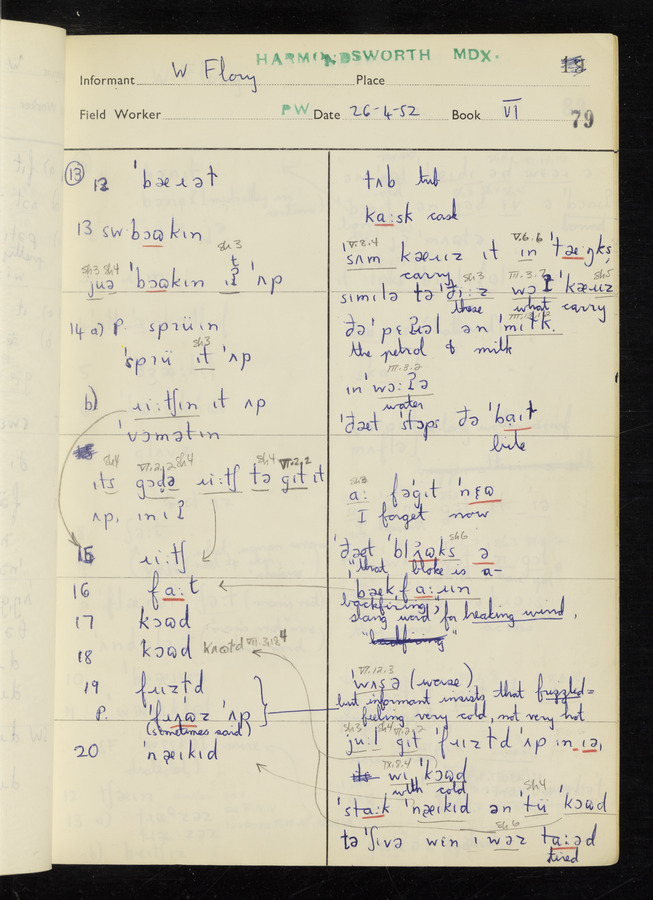 HARMONDSWORTH MDX.
Informant W Flory Place
Field Worker PW Date 26-4-52 Book VI 79
13 12 ˈbæɹət
13 sw. bɔɷkɪn
sh3
sh3 sh4
juə ˈbɔɷkɪn ɪʔ ˈʌp
t
14 a) P. sprüɪn
sh3
ˈsprü ɪt ˈʌp
b) ɹi:tʃɪn ɪt ʌp
ˈvɔmətɪn
sh4 VI.2.2 sh4 sh4 VI.2.2
ɪts gɔdə ɹi:tʃ tə gɪt ɪt
ʌp, ɪnɪʔ
15 ɹi:tʃ
16 fa:t
17 kɔɷd
18 kɔɷd kʌɷtd VI.3.12.4
19 fɹɪztd
P. ˈfɹʌɷz ˈʌp
(sometimes said)
20 ˈnæɪkɪd
tʌb tub
ka:sk cask
V.8.4 V.6.6
sʌm kæɹɪz ɪt ɪn ˈtæŋks,
carry sh3 III.3.7 sh5
sɪmɪlə tə ˈði:z wɔʔ ˈkæɹɪz
these what carry
ðə ˈpɛʔɹəl ən ˈmɪlk.
the petrol & milk
III.3.2
ɪn ˈwɔ:ʔə
water
ˈðæt stɔps ðə ˈbaɪt
bite
sh8
a: fəgɪt ˈnɛɷ
I forget now
sh6
ˈðæt ˈblʌɷks ə
"that bloke is a-
bækfa:ɹɪn
backfiring", slang word for breaking wind.
VI.12.3
ˈwʌsə (worse)
but informant insists that fruzzled =
feeling very cold, not very hot
sh3 sh4 VI.2.2
ju:l gɪt ˈfɹɪztd ˈʌp ɪn ɪə,
IX.8.4
wɪ ˈkɔɷd
with cold
sh4
ˈsta:k ˈnæɪkɪd ən ˈtü ˈkɔɷd
sh6
tə ˈʃɪvə wɪn ɪ wəz ta:əd
tired